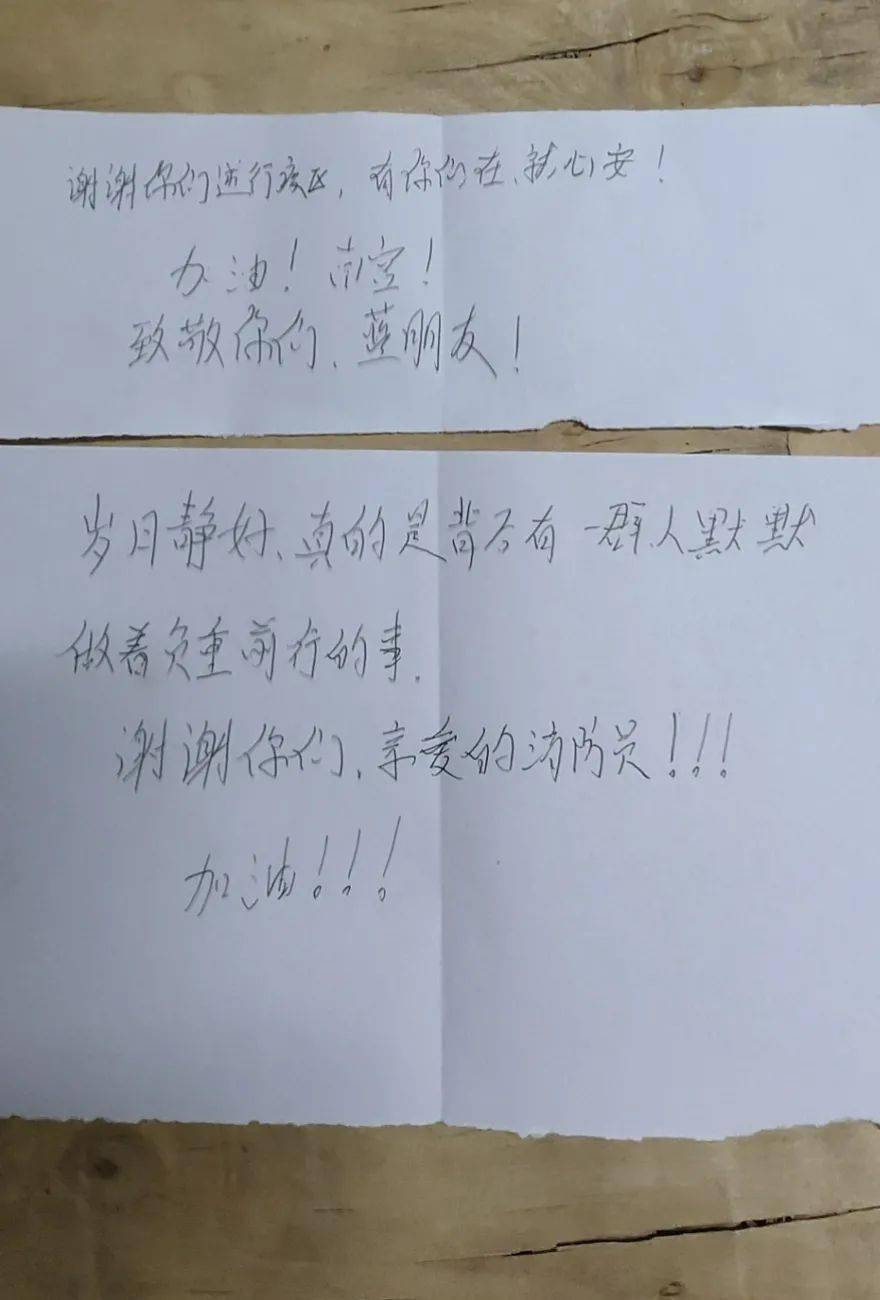 谢谢你们逆行疫区，有你们在、就心安！
加油！南宫！
致敬你们、蓝朋友！
岁月静好、真的是背后有一群人默默
做着负重前行的事.
谢谢你们、亲爱的消防员！！！
加油！！！